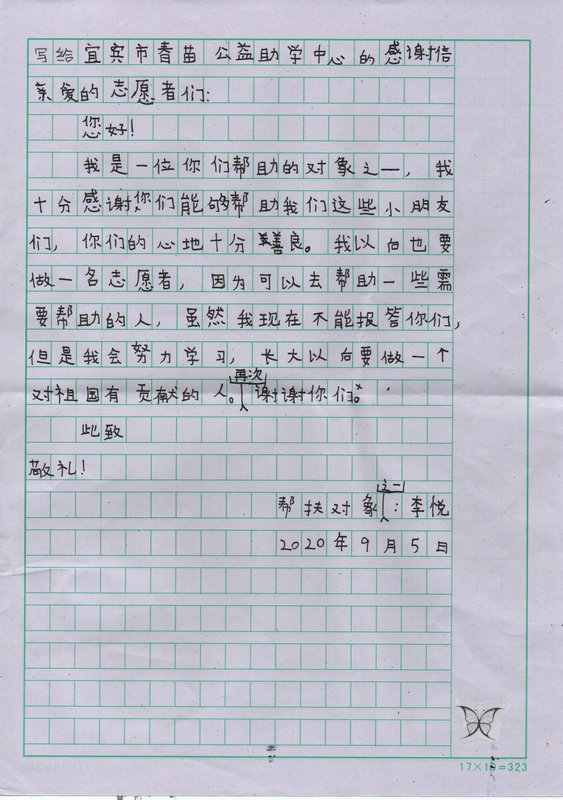 写给宜宾市春苗公益助学中心的感谢信
亲爱的志愿者们:
您好!
我是一位你们帮助的对象之一,我
十分感谢你们能够帮助我们这些小朋友
们,你们的心地十分善良。我以后也要
做一名志愿者,因为可以去帮助一些需
要帮助的人,虽然我现在不能报答你们,
但是我会努力学习,长大以后要做一个
对祖国有贡献的人。再次谢谢你们。
此致
敬礼!
帮扶对象之一:李悦
2020年9月5日
17×19=323